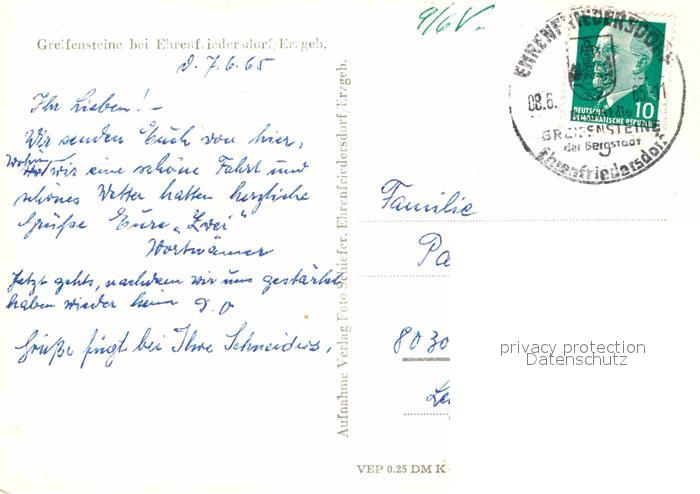 9/6 V.
Greifensteine bei Ehrenfriedersdorf/Erzgeb.
d. 7.6.65
Ihr Lieben! –
Wir senden Euch von hier,
wohin wir eine schöne Fahrt und
schönes Wetter hatten herzliche
Grüße Eure „Zwei"
Jetzt gehts, nachdem wir uns gestärkt
haben wieder heim D. O
Grüße fügt bei Ihre Schneiders.
Aufnahme Verlag Foto Schiefer, Ehrenfriedersdorf Erzgeb.
VEP 0.25 DM K
EHRENFRIEDERSDORF
08.6.
GREIFENSTEINE
der Bergstadt
Ehrenfriedersdorf
DEUTSCHE
DEMOKRATISCHE REPUBLIK
10
Familie
Pa
8030
privacy protection
Datenschutz